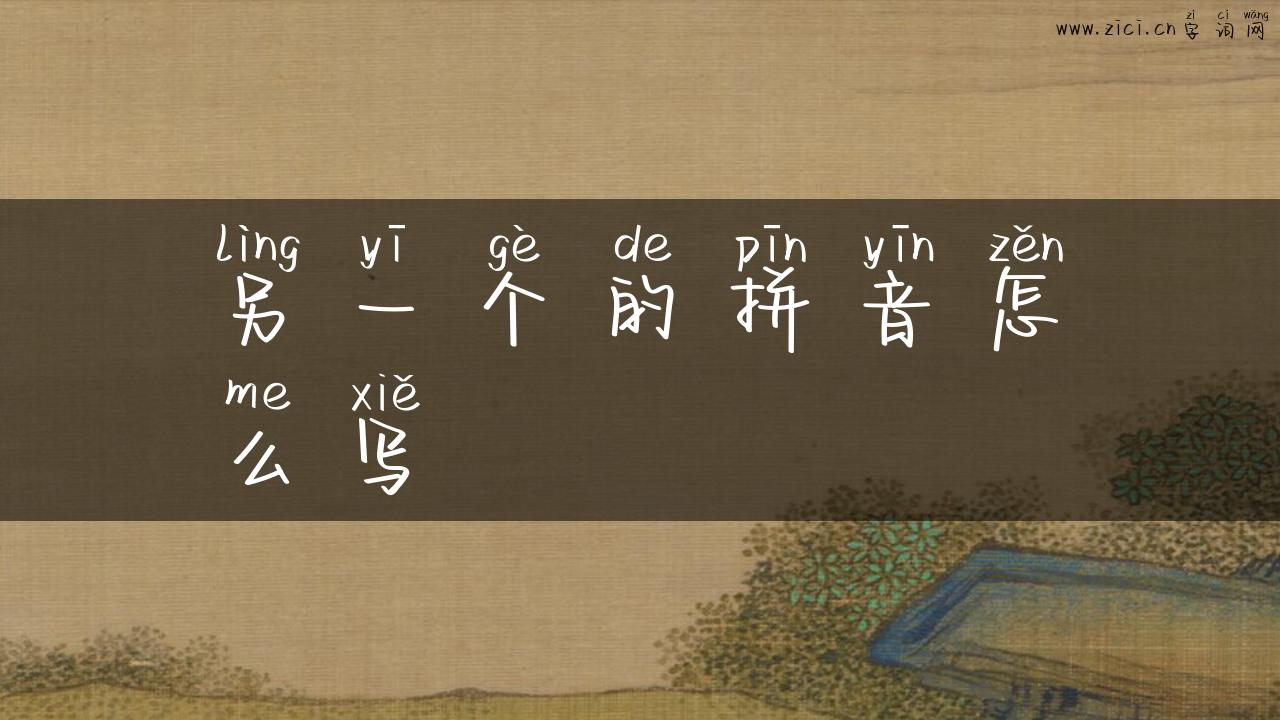 zì cí wǎng
www.zici.cn 字词网
lìng yī gè de pīn yīn zěn
另一个的拼音怎
me xiě
么写